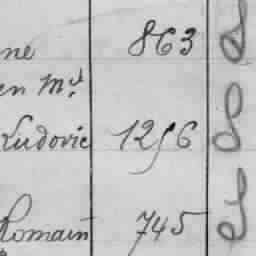 ne 863
en Mr
Ludovic 1256
Romain 745